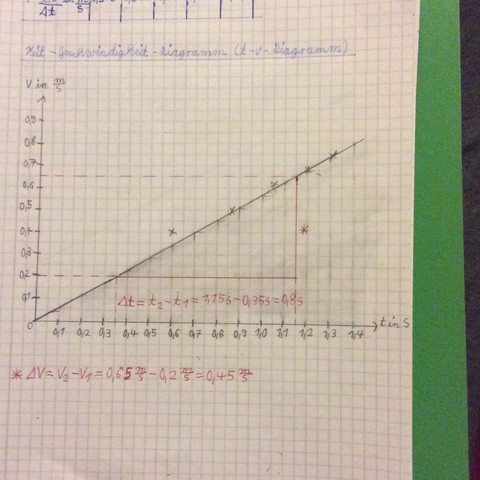 Δt in m/s
Zeit-Geschwindigkeit-Diagramm (t-v-Diagramm)
V in m/s
0,9
0,8
0,7
0,6
0,5
0,4
0,3
0,2
0,1
0
*
Δt = t₂ - t₁ = 1,15s - 0,35s = 0,8s
0,1 0,2 0,3 0,4 0,5 0,6 0,7 0,8 0,9 1,0 1,1 1,2 1,3 1,4 t in s
* ΔV = V₂ - V₁ = 0,65 m/s - 0,2 m/s = 0,45 m/s